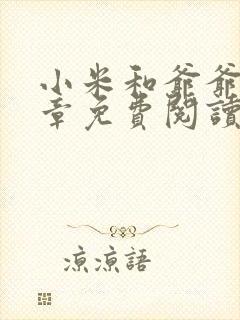 小米和爺爺
章免費閱讀
涼涼語